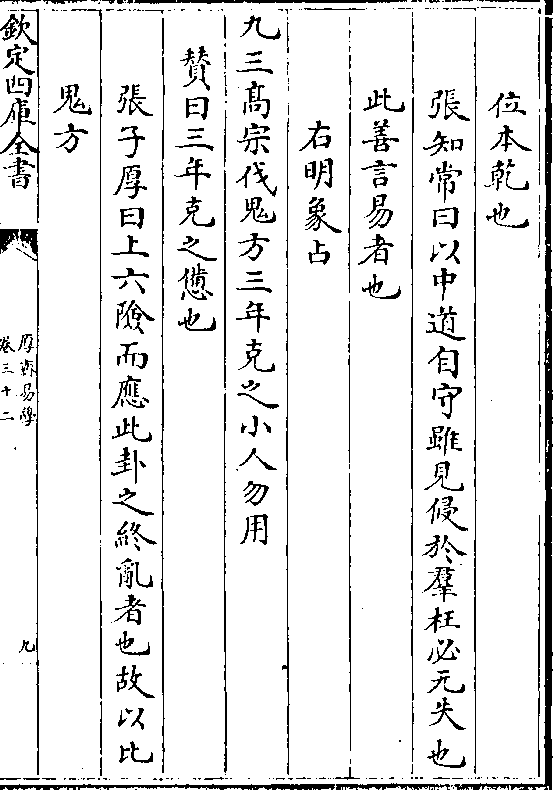 位本乾也
張知常曰以中道自守雖見侵於羣枉必无失也
此善言易者也
右明象占
九三髙宗伐鬼方三年克之小人勿用
賛曰三年克之憊也
張子厚曰上六險而應此卦之終亂者也故以比
鬼方
欽定四庫全書
厚齋易學
卷三十二
九